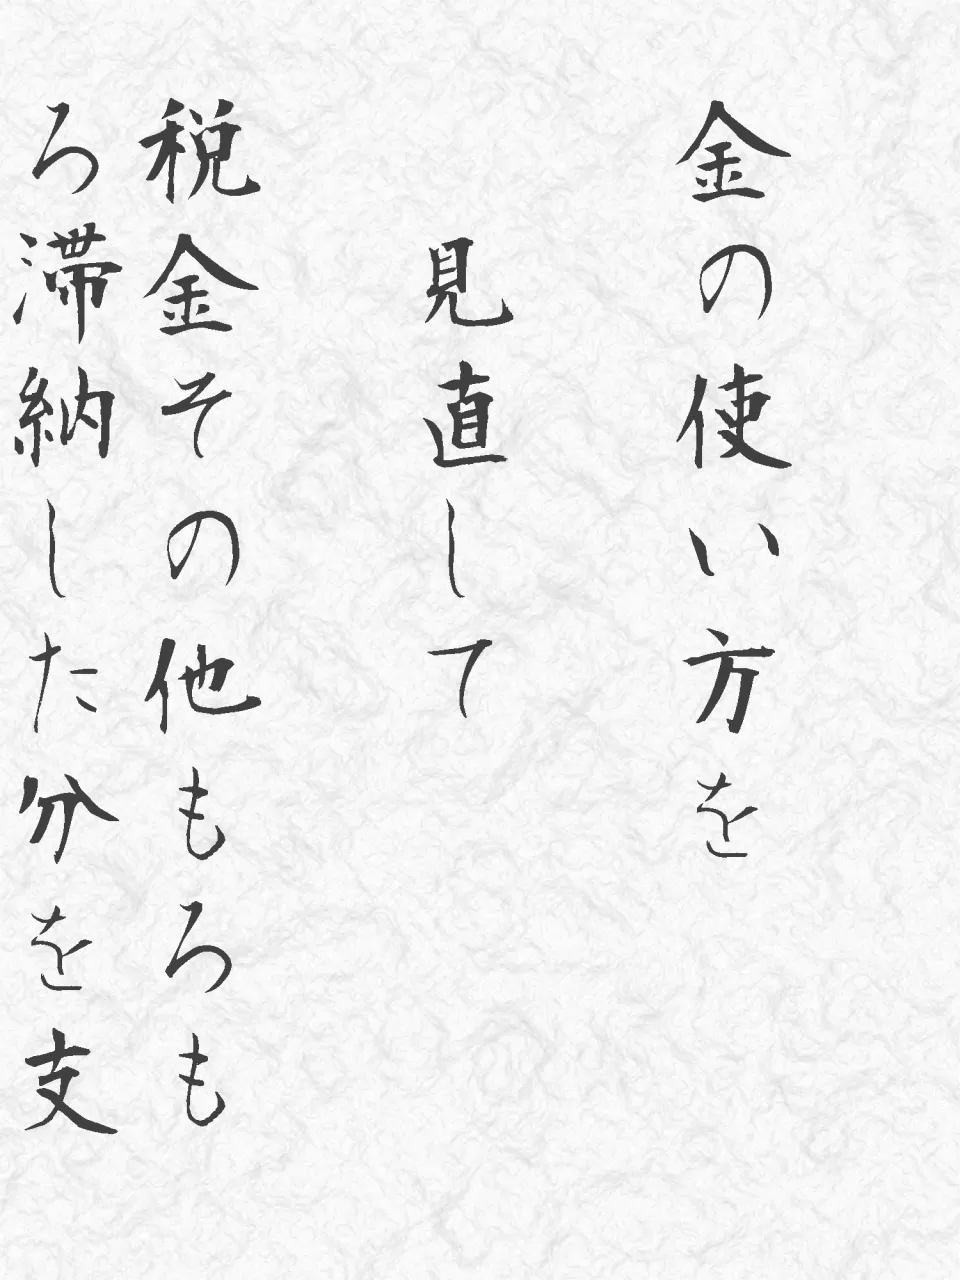 金の使い方を
見直して
税金その他もろも
ろ滞納した分を支